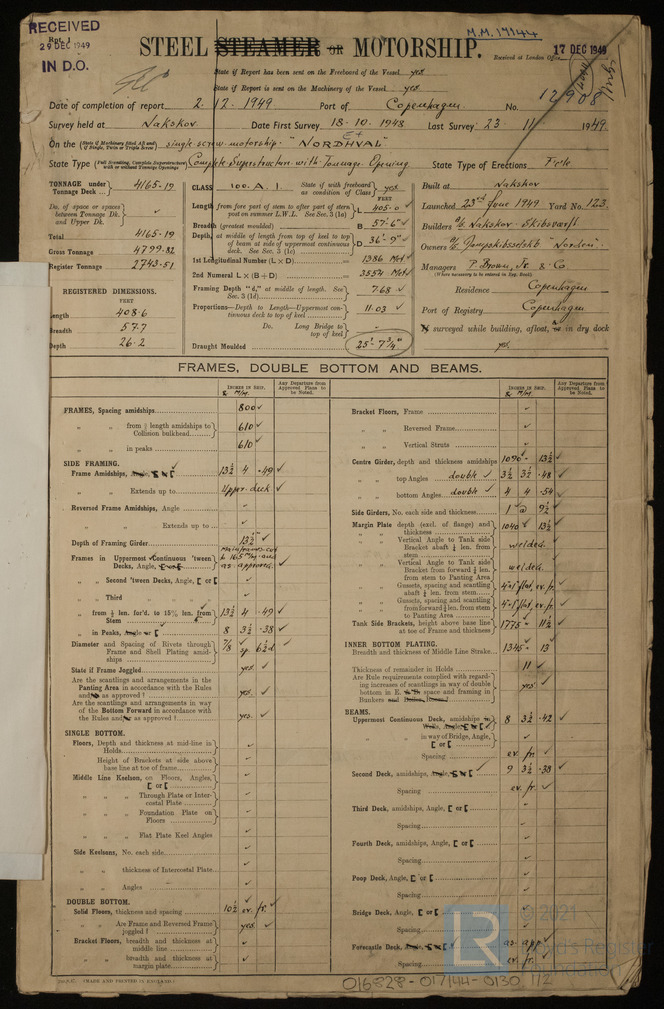 RECEIVED
Rpt. 1
29 DEC 1949
IN D.O.
M.M. 17144
17 DEC 1949
STEEL STEAMER OR MOTORSHIP.
Received at London Office
State if Report has been sent on the Freeboard of the Vessel yes
State if Report is sent on the Machinery of the Vessel yes
Date of completion of report 2. 12. 1949 Port of Copenhagen No. 12908
Survey held at Nakskov Date First Survey 18-10-1948 Last Survey 23 11 1949
On the (State if Machinery fitted Aft and if Single, Twin or Triple Screw) single screw motorship "NORDHVAL"
State Type (Full Scantling, Complete Superstructure with or without Tonnage Openings) Complete Superstructure with Tonnage Opening State Type of Erections F'cle
TONNAGE under Tonnage Deck 4165.19
Do. of space or spaces between Tonnage Dk. and Upper Dk.
Total 4165.19
Gross Tonnage 4799.82
Register Tonnage 2743.51
REGISTERED DIMENSIONS.
FEET
Length 408.6
Breadth 57.7
Depth 26.2
CLASS 100.A.1 State of with freeboard as condition of Class yes
FEET
Length from fore part of stem to after part of stern post on summer L.W.L. See Sec. 3 (1a) L 405-0
Breadth (greatest moulded) B 57'-6"
Depth, at middle of length from top of keel to top of beam at side of uppermost continuous deck. See Sec. 3 (1c) D 36'-9"
1st Longitudinal Number (L × D) = 1386 Met
2nd Numeral L × (B + D) = 3554 Met
Framing Depth "d," at middle of length. See Sec. 3 (1d) 7.68
Proportions—Depth to Length—Uppermost continuous deck to top of keel 11.03
Do. Long Bridge to top of keel -
Draught Moulded 25'-7¾"
Built at Nakskov
Launched 23rd June 1949 Yard No. 123
Builders A/S Nakskov Skibsværft
Owners D/S "Norden"
Managers P. Brown, Jr. & Co
(Where necessary to be entered in Reg. Book)
Residence Copenhagen
Port of Registry Copenhagen
If surveyed while building, afloat, or in dry dock
yes.
FRAMES, DOUBLE BOTTOM AND BEAMS.
INCHES IN SHIP.
Any Departure from Approved Plans to be Noted.
INCHES IN SHIP.
Any Departure from Approved Plans to be Noted.
FRAMES, Spacing amidships 800
" " from ½ length amidships to Collision bulkhead 610
" " in peaks 610
SIDE FRAMING.
Frame Amidships, Angle, 13½ 4 .49
" " Extends up to Upper deck
Reversed Frame Amidships, Angle
" " Extends up to
Depth of Framing Girder 13½"
Frames in Uppermost Continuous 'tween Decks, Angle, as approved.
" " Second 'tween Decks, Angle, [ or [
" " Third " " "
" " from ½ len. for'd. to 15% len. from Stem 13½ 4 .49
" " in Peaks, Angle or [ 8 3½ .38
Diameter and Spacing of Rivets through Frame and Shell Plating amidships 7/8 sp. 6½ d
State if Frame Joggled yes.
Are the scantlings and arrangements in the Panting Area in accordance with the Rules and/or as approved? yes.
Are the scantlings and arrangements in way of the Bottom Forward in accordance with the Rules and/or as approved? yes.
SINGLE BOTTOM.
Floors, Depth and thickness at mid-line in Holds
Height of Brackets at side above base line at toe of frame
Middle Line Keelson, on Floors, Angles, [ or [
" " " Through Plate or Intercostal Plate
" " " Foundation Plate on Floors
" " " Flat Plate Keel Angles
Side Keelsons, No. each side
" " thickness of Intercostal Plate
" " Angles
DOUBLE BOTTOM.
Solid Floors, thickness and spacing 10½ ev. fr.
" " Are Frame and Reversed Frame joggled? yes
Bracket Floors, breadth and thickness at middle line
" " breadth and thickness at margin plate
Bracket Floors, Frame
" " Reversed Frame
" " Vertical Struts
Centre Girder, depth and thickness amidships 1090 13½
" " top Angles double 3½ 3½ .48
" " bottom Angles double 4 4 .54
Side Girders, No. each side and thickness 1 @ 9½
Margin Plate depth (excl. of flange) and thickness 1040 13½
" " Vertical Angle to Tank side Bracket abaft ¼ len. from stem welded.
" " Vertical Angle to Tank side Bracket from forward ¼ len. from stem to Panting Area welded.
" " Gussets, spacing and scantling abaft ¼ len. from stem ev. fr.
" " Gussets, spacing and scantling from forward ¼ len. from stem to Panting Area ev. fr.
Tank Side Brackets, height above base line at toe of Frame and thickness 1775 11½
INNER BOTTOM PLATING.
Breadth and thickness of Middle Line Strake 1345 13
Thickness of remainder in Holds 11
Are Rule requirements complied with regarding increases of scantlings in way of double bottom in E. & B. space and framing in Bunkers and Boiler Room? yes
BEAMS.
Uppermost Continuous Deck, amidships 8 3½ .42
" " in way of Bridge, Angle, [ or [
Spacing ev. fr.
Second Deck, amidships, Angle, 9 3½ .38
Spacing ev. fr.
Third Deck, amidships, Angle, [ or [
Spacing
Fourth Deck, amidships, Angle, [ or [
Spacing
Poop Deck, Angle, [ or [
Spacing
Bridge Deck, Angle, [ or [
Spacing
Forecastle Deck, as app.
Spacing ev. fr.
(MADE AND PRINTED IN ENGLAND.)
LR
© 2021
Lloyd's Register
Foundation
016828-017144-0130 1/2